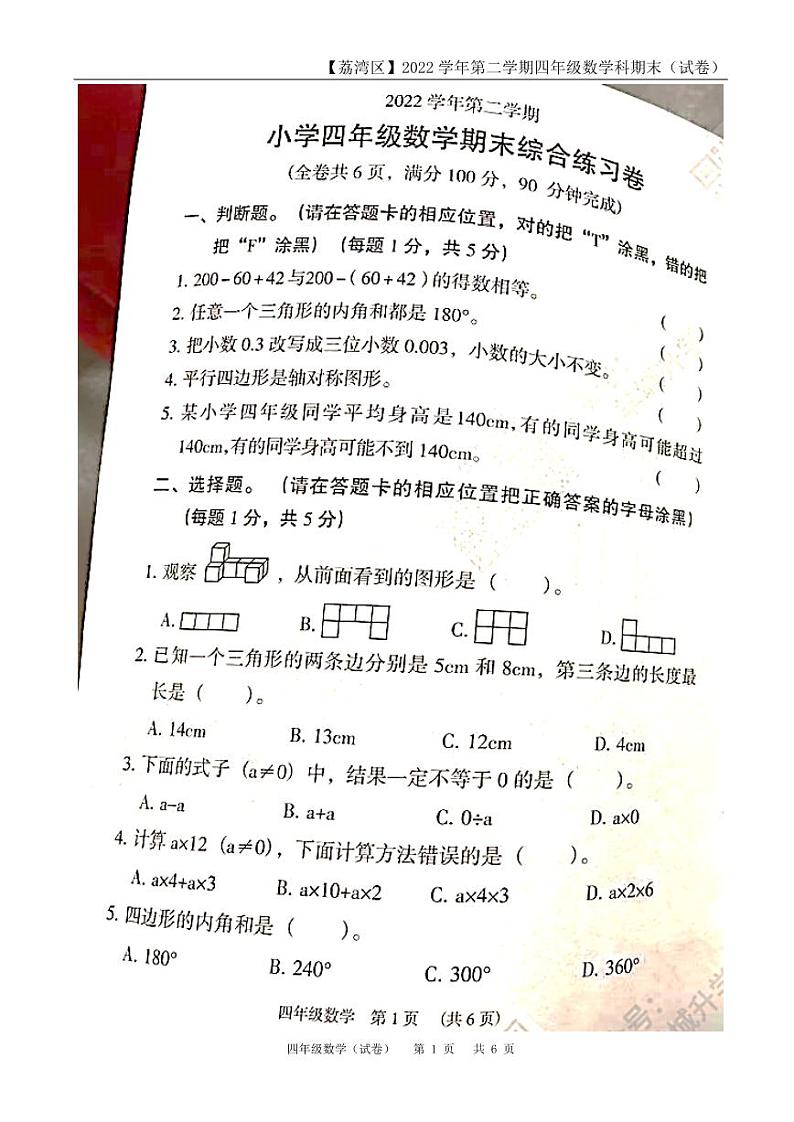 【荔湾区】2022 学年第二学期四年级数学科期末（试卷）
2022 学年第二学期
小学四年级数学期末综合练习卷
(全卷共 6 页，满分 100 分，90 分钟完成)
一、判断题。（请在答题卡的相应位置，对的把“T”涂黑，错的把
把“F”涂黑）（每题 1 分，共 5 分）
1. 200－60＋42 与200－( 60＋42 ) 的得数相等。 ( )
2. 任意一个三角形的内角和都是 180°。 ( )
3. 把小数 0.3 改写成三位小数 0.003，小数的大小不变。 ( )
4. 平行四边形是轴对称图形。 ( )
5. 某小学四年级同学平均身高是140cm,有的同学身高可能超过
140cm,有的同学身高可能不到 140cm。 ( )
二、选择题。（请在答题卡的相应位置把正确答案的字母涂黑）
(每题 1 分，共 5 分）
1. 观察 ，从前面看到的图形是（ ）。
A. B. C. D.
2. 已知一个三角形的两条边分别是 5cm 和 8cm，第三条边的长度最
长是（ ）。
A. 14cm B. 13cm C. 12cm D. 4cm
3. 下面的式子（a≠0）中，结果一定不等于 0 的是（ ）。
A. a-a B. a+a C. 0÷a D. a×0
4. 计算 a×12（a≠0），下面计算方法错误的是（ ）。
A. a×4+a×3 B. a×10+a×2 C. a×4×3 D. a×2×6
5. 四边形的内角和是（ ）。
A. 180° B. 240° C. 300° D. 360°
四年级数学 第 1 页 (共 6 页)
号：
城升学
四年级数学（试卷） 第 1 页 共 6 页